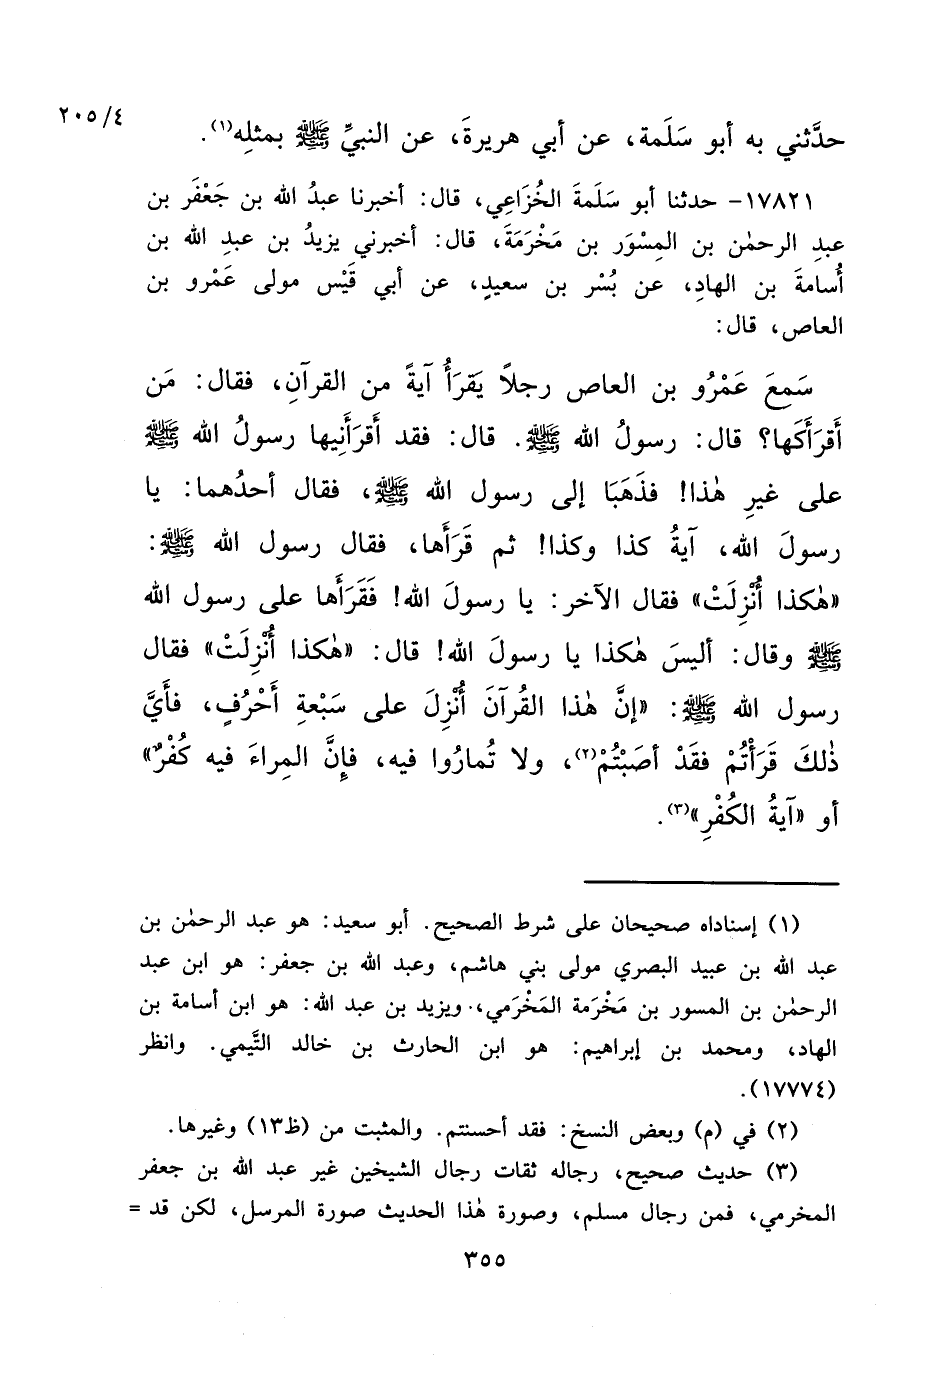 ٢٠٥/٤
حدَّثني به أبو سَلَمة، عن أبي هريرةَ، عن النبيِّ ﷺ بمثلِه(١).
١٧٨٢١- حدثنا أبو سَلَمةَ الخُزَاعِي، قال: أخبرنا عبدُ الله بن جَعْفَر بن
عبدِ الرحمٰن بن المِسْوَر بن مَخْرَمَةَ، قال: أخبرني يزيدُ بن عبدِ الله بن
أُسامةَ بن الهادِ، عن بُسْر بن سعيدٍ، عن أبي قَيْس مولى عَمْرو بن
العاص، قال:
سَمِعَ عَمْرُو بن العاص رجلاً يَقرَأُ آيةً من القرآنِ، فقال: مَن
أَقرَأَكَها؟ قال: رسولُ الله ﷺ. قال: فقد أَقرَأَنِيها رسولُ الله ﷺ
على غيرِ هٰذا! فذَهَبَا إلى رسول الله ﷺ، فقال أحدُهما: يا
رسولَ الله، آيةُ كذا وكذا! ثم قَرَأَها، فقال رسول الله ﷺ:
«هٰكذا أُنْزِلَتْ» فقال الآخر: يا رسولَ الله! فَقَرَأَها على رسول الله
ﷺ وقال: أليسَ هٰكذا يا رسولَ الله! قال: «هٰكذا أُنْزِلَتْ» فقال
رسول الله ﷺ: «إنَّ هٰذا القُرآنَ أُنْزِلَ على سَبْعةِ أَحْرُفٍ، فأَيَّ
ذٰلكَ قَرَأْتُمْ فقَدْ أصَبْتُمْ(٢)، ولا تُمارُوا فيه، فإِنَّ المِراءَ فيه كُفْرٌ»
أو «آيةُ الكُفْرِ»(٣).
(١) إسناداه صحيحان على شرط الصحيح. أبو سعيد: هو عبد الرحمٰن بن
عبد الله بن عبيد البصري مولى بني هاشم، وعبد الله بن جعفر: هو ابن عبد
الرحمٰن بن المسور بن مَخْرَمة المَخْرَمي، ويزيد بن عبد الله: هو ابن أسامة بن
الهاد، ومحمد بن إبراهيم: هو ابن الحارث بن خالد التَّيمي. وانظر
(١٧٧٧٤).
(٢) في (م) وبعض النسخ: فقد أحسنتم. والمثبت من (ظ١٣) وغيرها.
(٣) حديث صحيح، رجاله ثقات رجال الشيخين غير عبد الله بن جعفر
المخرمي، فمن رجال مسلم، وصورة هٰذا الحديث صورة المرسل، لكن قد =
٣٥٥